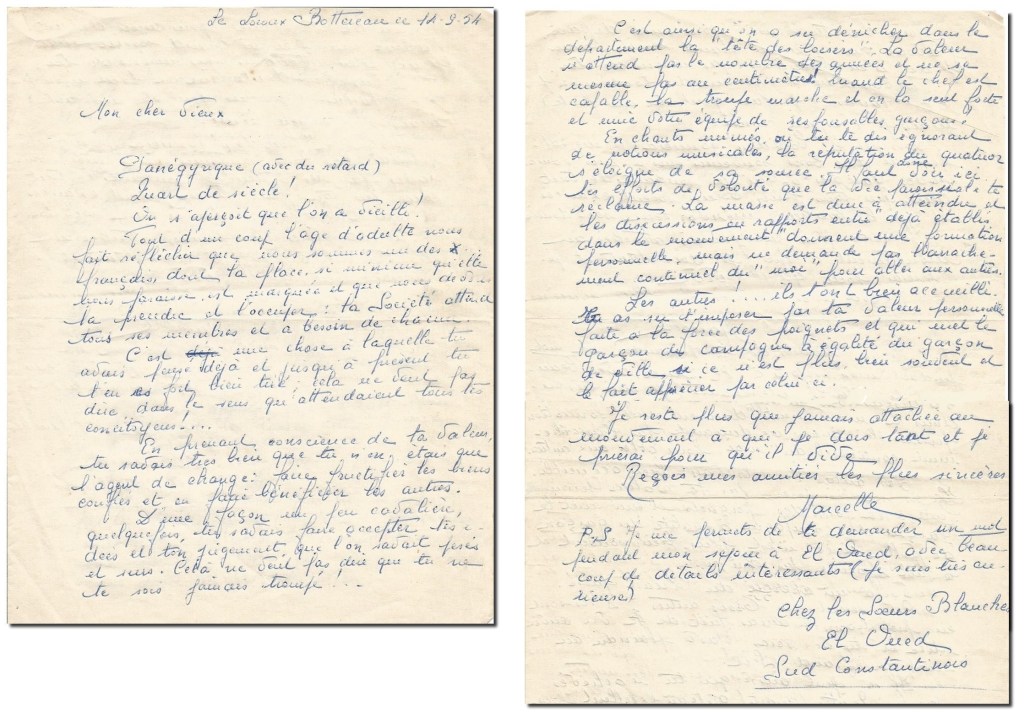 Le Loroux Bottereau le 14-9-54
Mon cher vieux
Panégyrique (avec du retard)
Quart de siècle!
On s'aperçoit que l'on a vieilli!
Tout d'un coup l'âge d'adulte nous
fait réfléchir que nous sommes un des
français dont la place, si minime qu'elle
nous paraisse, est marquée et que nous devons
la prendre et l'occuper: la Société attend
tous ses membres et a besoin de chacun.
C'est une chose à laquelle tu
avais pensé déjà et jusqu'à présent tu
t'en es fort bien tiré; cela ne veut pas
dire dans le sens qu'attendaient tous tes
concitoyens!...
En prenant conscience de ta valeur,
tu savais très bien que tu n'en étais que
l'agent de change: faire fructifier les biens
confiés et en faire bénéficier les autres.
D'une façon un peu cavalière,
quelquefois, tu savais faire accepter tes i-
dées et ton jugement, que l'on savait pesés
et surs. Celà ne veut pas dire que tu ne
te sois jamais trompé!...
C'est ainsi qu'on a su dénicher dans le
département la "tête des loisirs". La valeur
n'attend pas le nombre des années et ne se
mesure pas au centimètre! Quand le chef est
capable, la troupe marche et on la sent forte
et unie votre équipe de responsables garçons!
En chants mimés, où tu te dis ignorant
de notions musicales, la réputation du quatuor
s'éloigne de sa source. Il faut voir ici
les efforts de volonté que la vie paroissiale te
réclame. La masse est dure à atteindre et
les discussions en rapports entre "déjà établis
dans le mouvement" donnent une formation
personnelle, mais ne demande pas l'arrache-
ment continuel du "moi" pour aller aux autres.
Les autres!... ils t'ont bien accueilli.
Tu as su t'imposer par ta valeur personnelle
faite a la force des poignets et qui met le
garçon de campagne à égalité du garçon
de ville si ce n'est plus bien souvent et
le fait apprécier par celui ci.
Je reste plus que jamais attachée au
mouvement à qui je dois tant et je
prierai pour qu'il vive
Reçois mes amitiés les plus sincères
Marcelle
P.S. Je me permets de te demander un mot
pendant mon séjour à El Oued, avec beau-
coup de détails intéressants (je suis très cu-
rieuse)
Chez les Sœurs Blanches
El Oued
Sud Constantinois